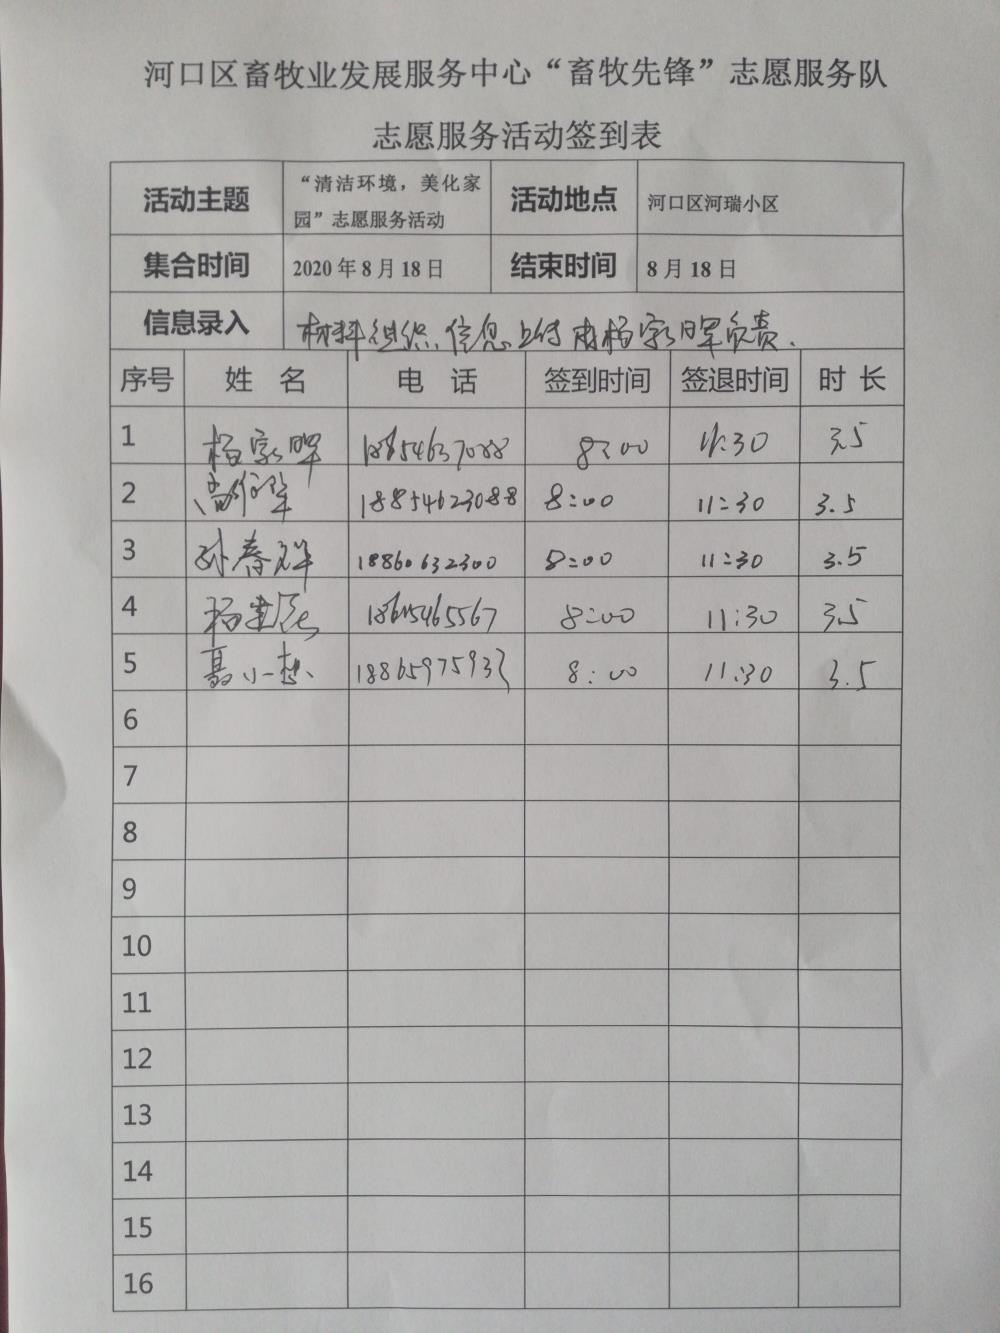 河口区畜牧业发展服务中心“畜牧先锋”志愿服务队
志愿服务活动签到表
活动主题 “清洁环境，美化家园”志愿服务活动 活动地点 河口区河瑞小区
集合时间 2020年8月18日 结束时间 8月18日
信息录入 材料组织、信息上传由杨家晖负责.
序号 姓名 电话 签到时间 签退时间 时长
1 杨家晖 8:00 11:30 3.5
2 18854623088 8:00 11:30 3.5
3 孙春祥 18860632300 8:00 11:30 3.5
4 8:00 11:30 3.5
5 聂小想 8:00 11:30 3.5
6
7
8
9
10
11
12
13
14
15
16